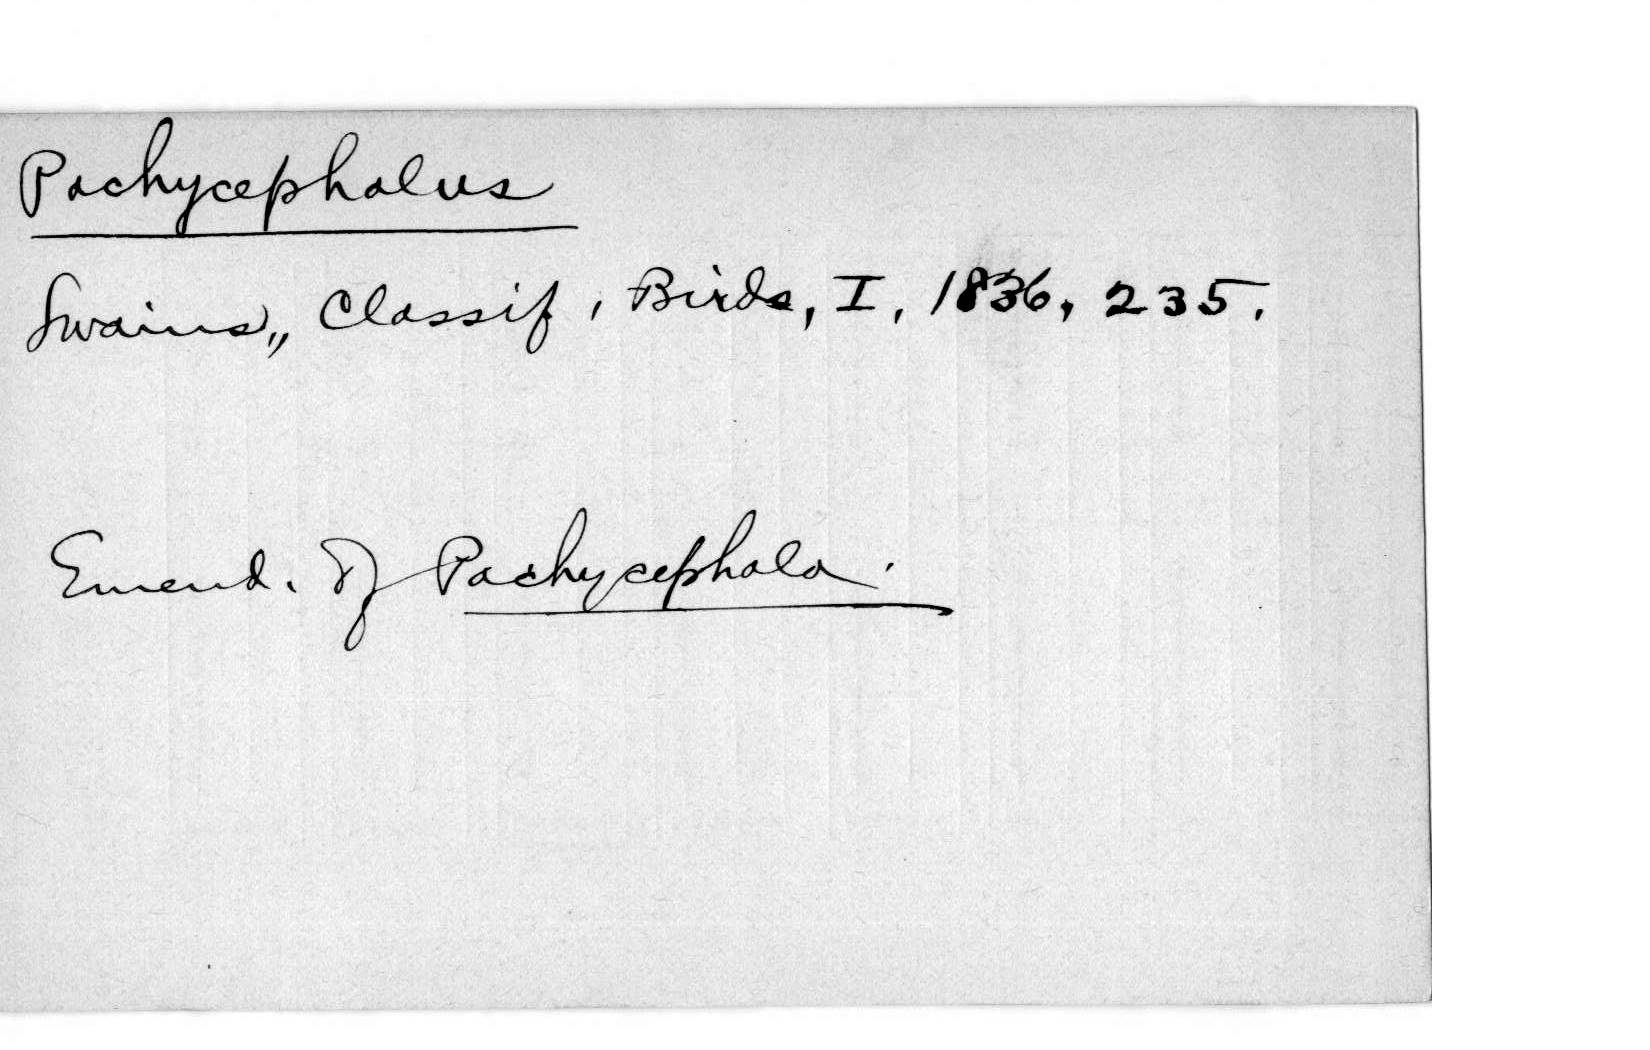 Pachycephalus
Swains., Classif, Birds, I, 1836, 235.
Emend. of Pachycephala.